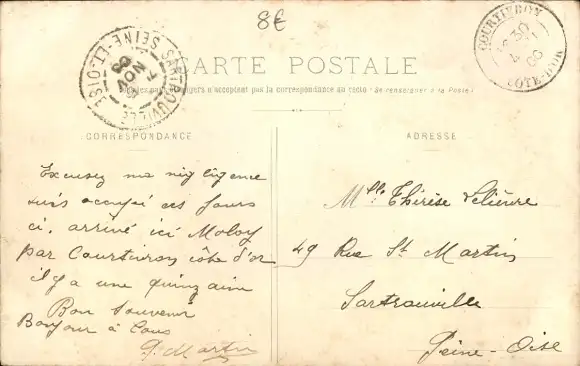 8€
SARTROUVILLE
SEINE-ET-OISE
NOV
08
COURTIVRON
CÔTE-D'OR
30
08
CARTE POSTALE
n'acceptent pas la correspondance au recto - Se renseigner à la Poste)
CORRESPONDANCE
ADRESSE
Excusez ma négligence
suis occupé ces jours
ci. arrivé ici Moloy
par Courtivron côte d'or
il y a une quinzaine
Bon Souvenir
Bonjour à tous
G. Martin
Mlle Thérèse Lelièvre
49 Rue St Martin
Sartrouville
Seine-Oise